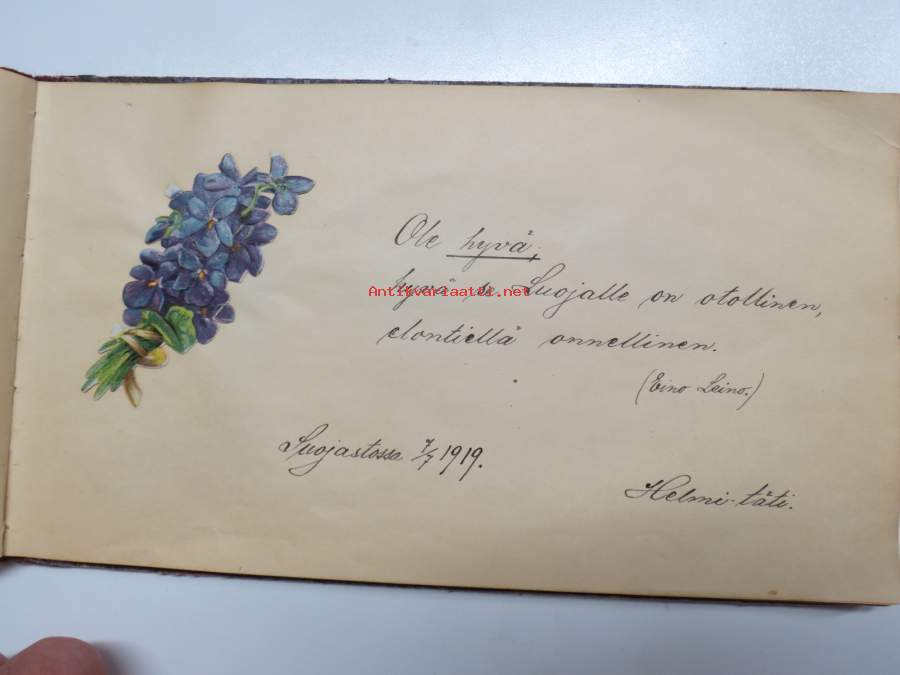 Ole hyvä,
hyvä se Luojalle on otollinen,
Antikvariaatti.net
elontiellä onnellinen.
(Eino Leino.)
Suojastossa 7/7 1919.
Helmi-täti.